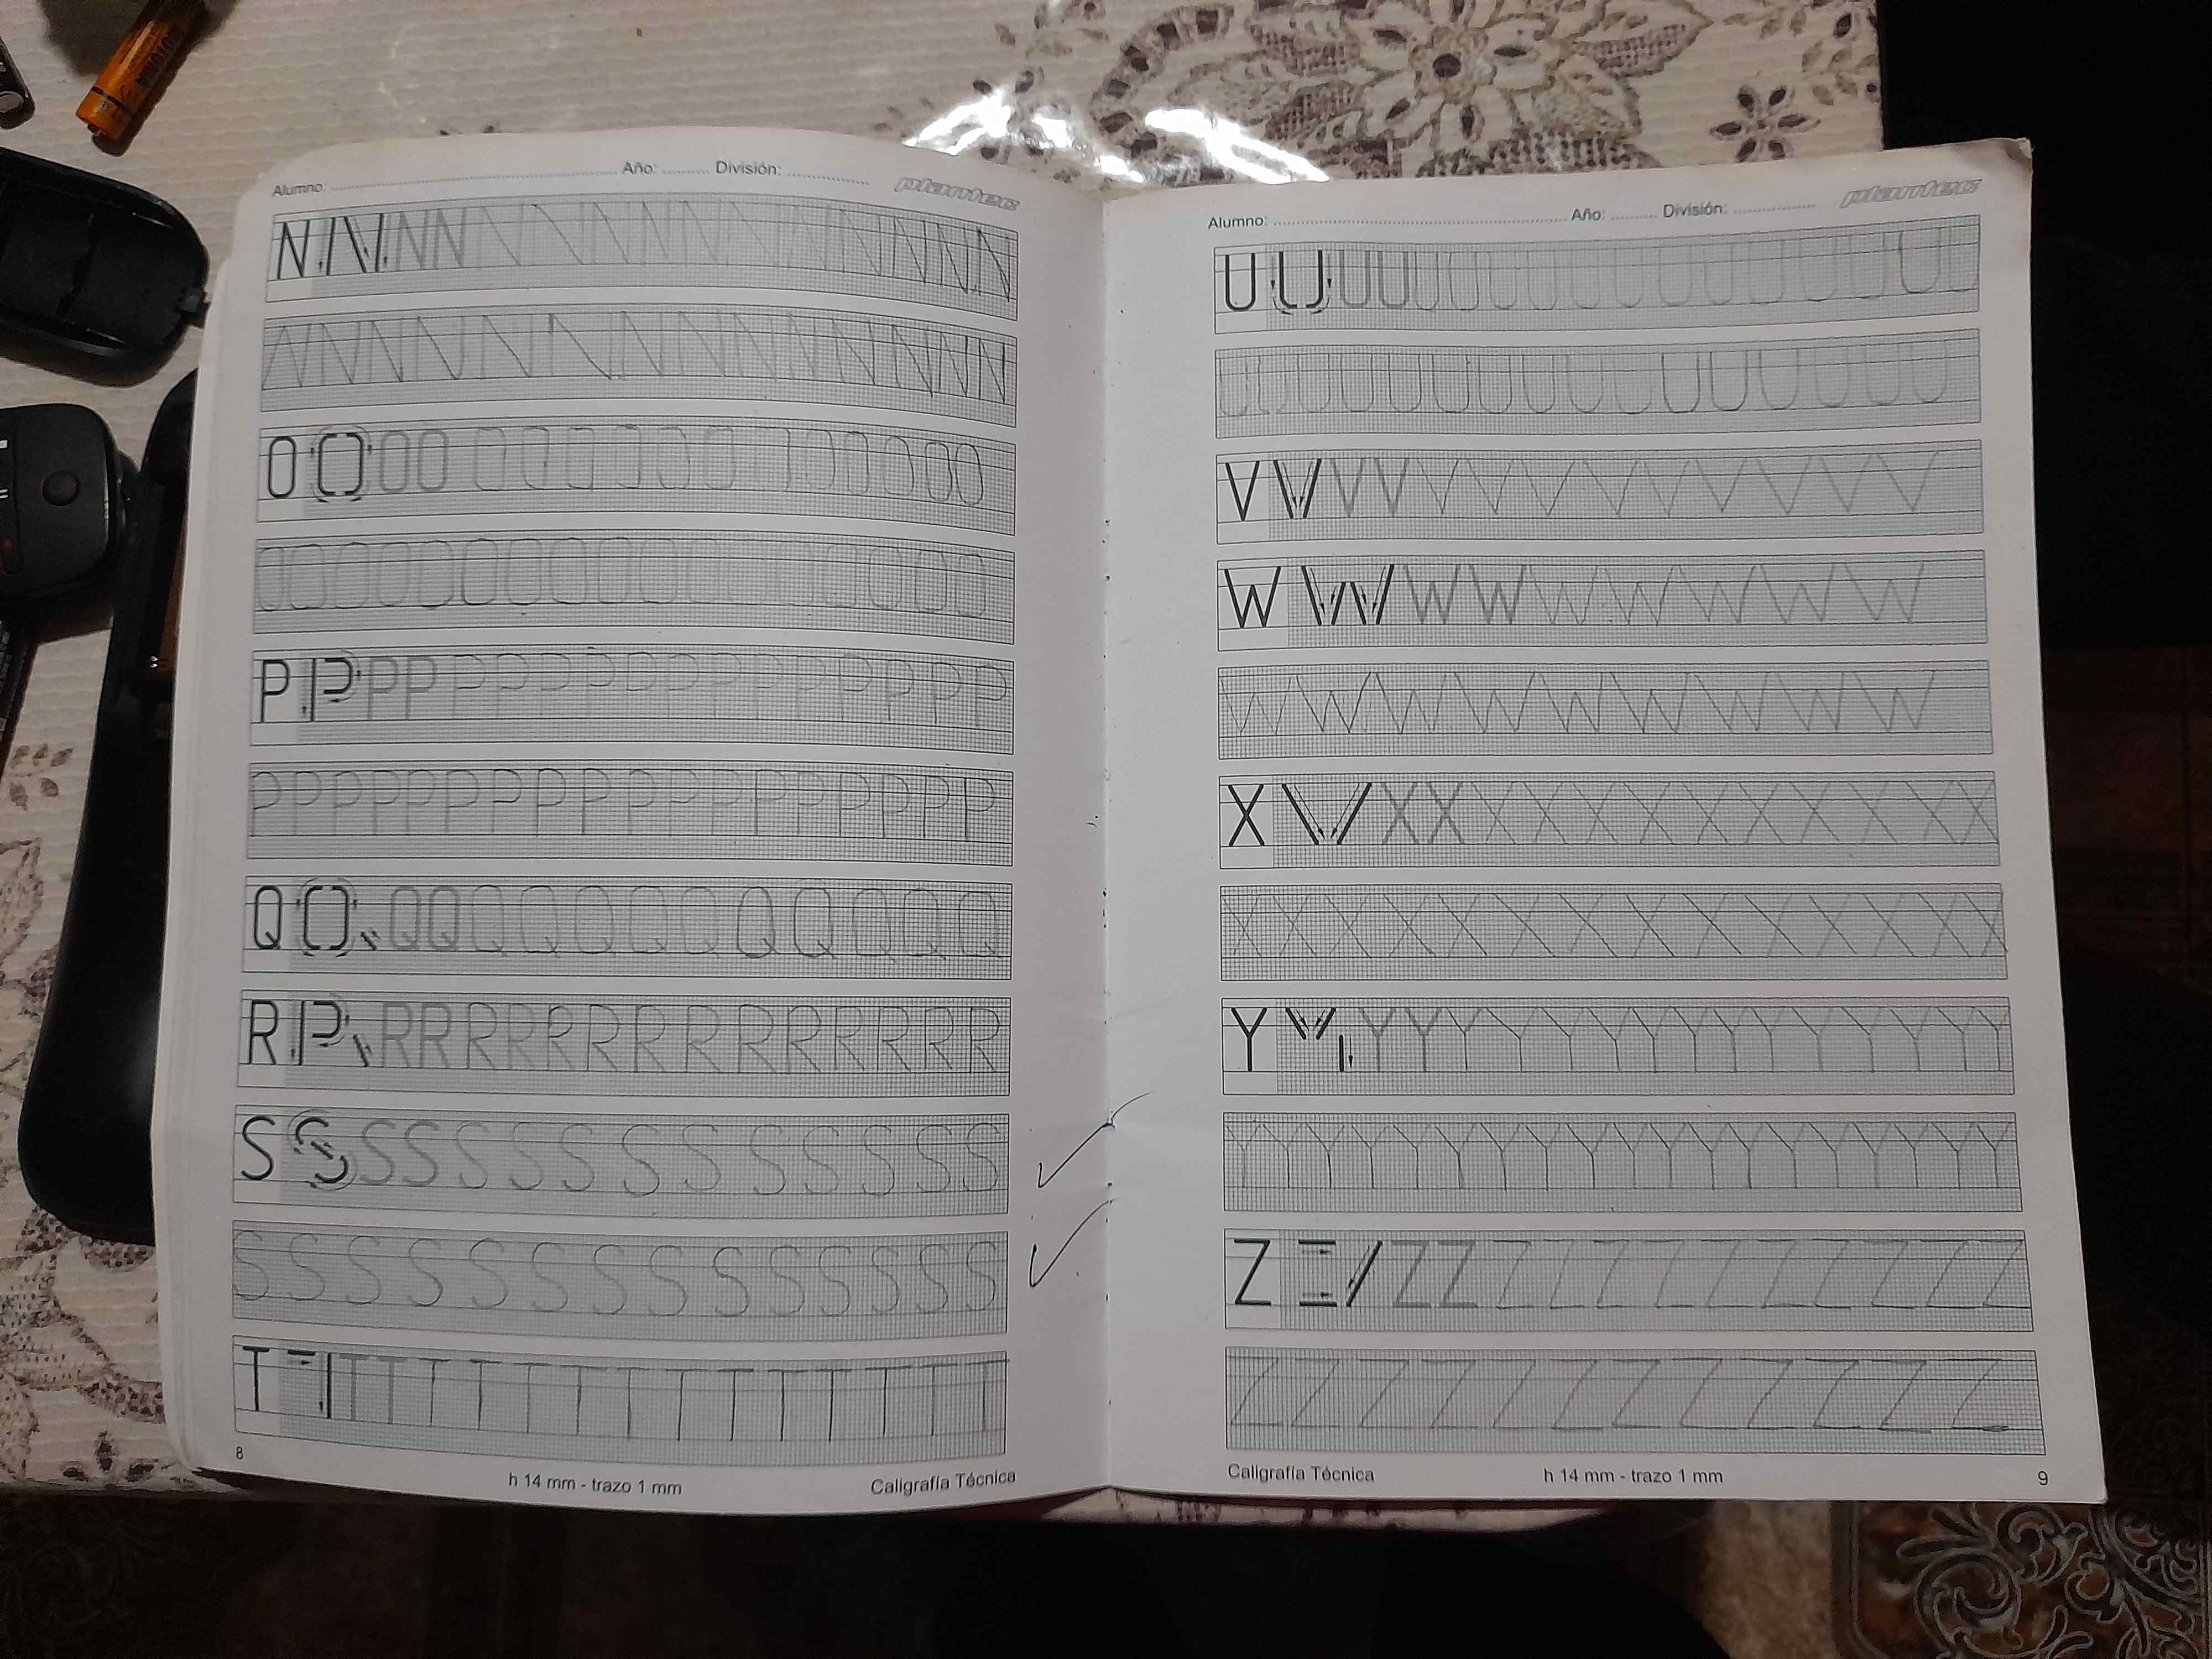 Alumno: Año: División: plantec
N N N N N N N N N N N N N N N N
N N N N N N N N N N N N N N N
O O O O O O O O O O O O O O O
O O O O O O O O O O O O O O O O
P P P P P P P P P P P P P P P P
P P P P P P P P P P P P P P P P P
Q Q Q Q Q Q Q Q Q Q Q Q Q
R R R R R R R R R R R R R R R
S S S S S S S S S S S S S
S S S S S S S S S S S S S S
T T T T T T T T T T T T T T T
8
h 14 mm - trazo 1 mm Caligrafía Técnica
Alumno: Año: División: plantec
U U U U U U U U U U U U U U U
U U U U U U U U U U U U U U U U
V V V V V V V V V V V V
W W W W W W W W
W W W W W W W W W
X X X X X X X X X X X X X
X X X X X X X X X X X X X
Y Y Y Y Y Y Y Y Y Y Y Y Y Y Y
Y Y Y Y Y Y Y Y Y Y Y Y Y Y Y Y Y Y
Z Z Z Z Z Z Z Z Z Z Z Z Z
Z Z Z Z Z Z Z Z Z Z Z Z
Caligrafía Técnica h 14 mm - trazo 1 mm 9